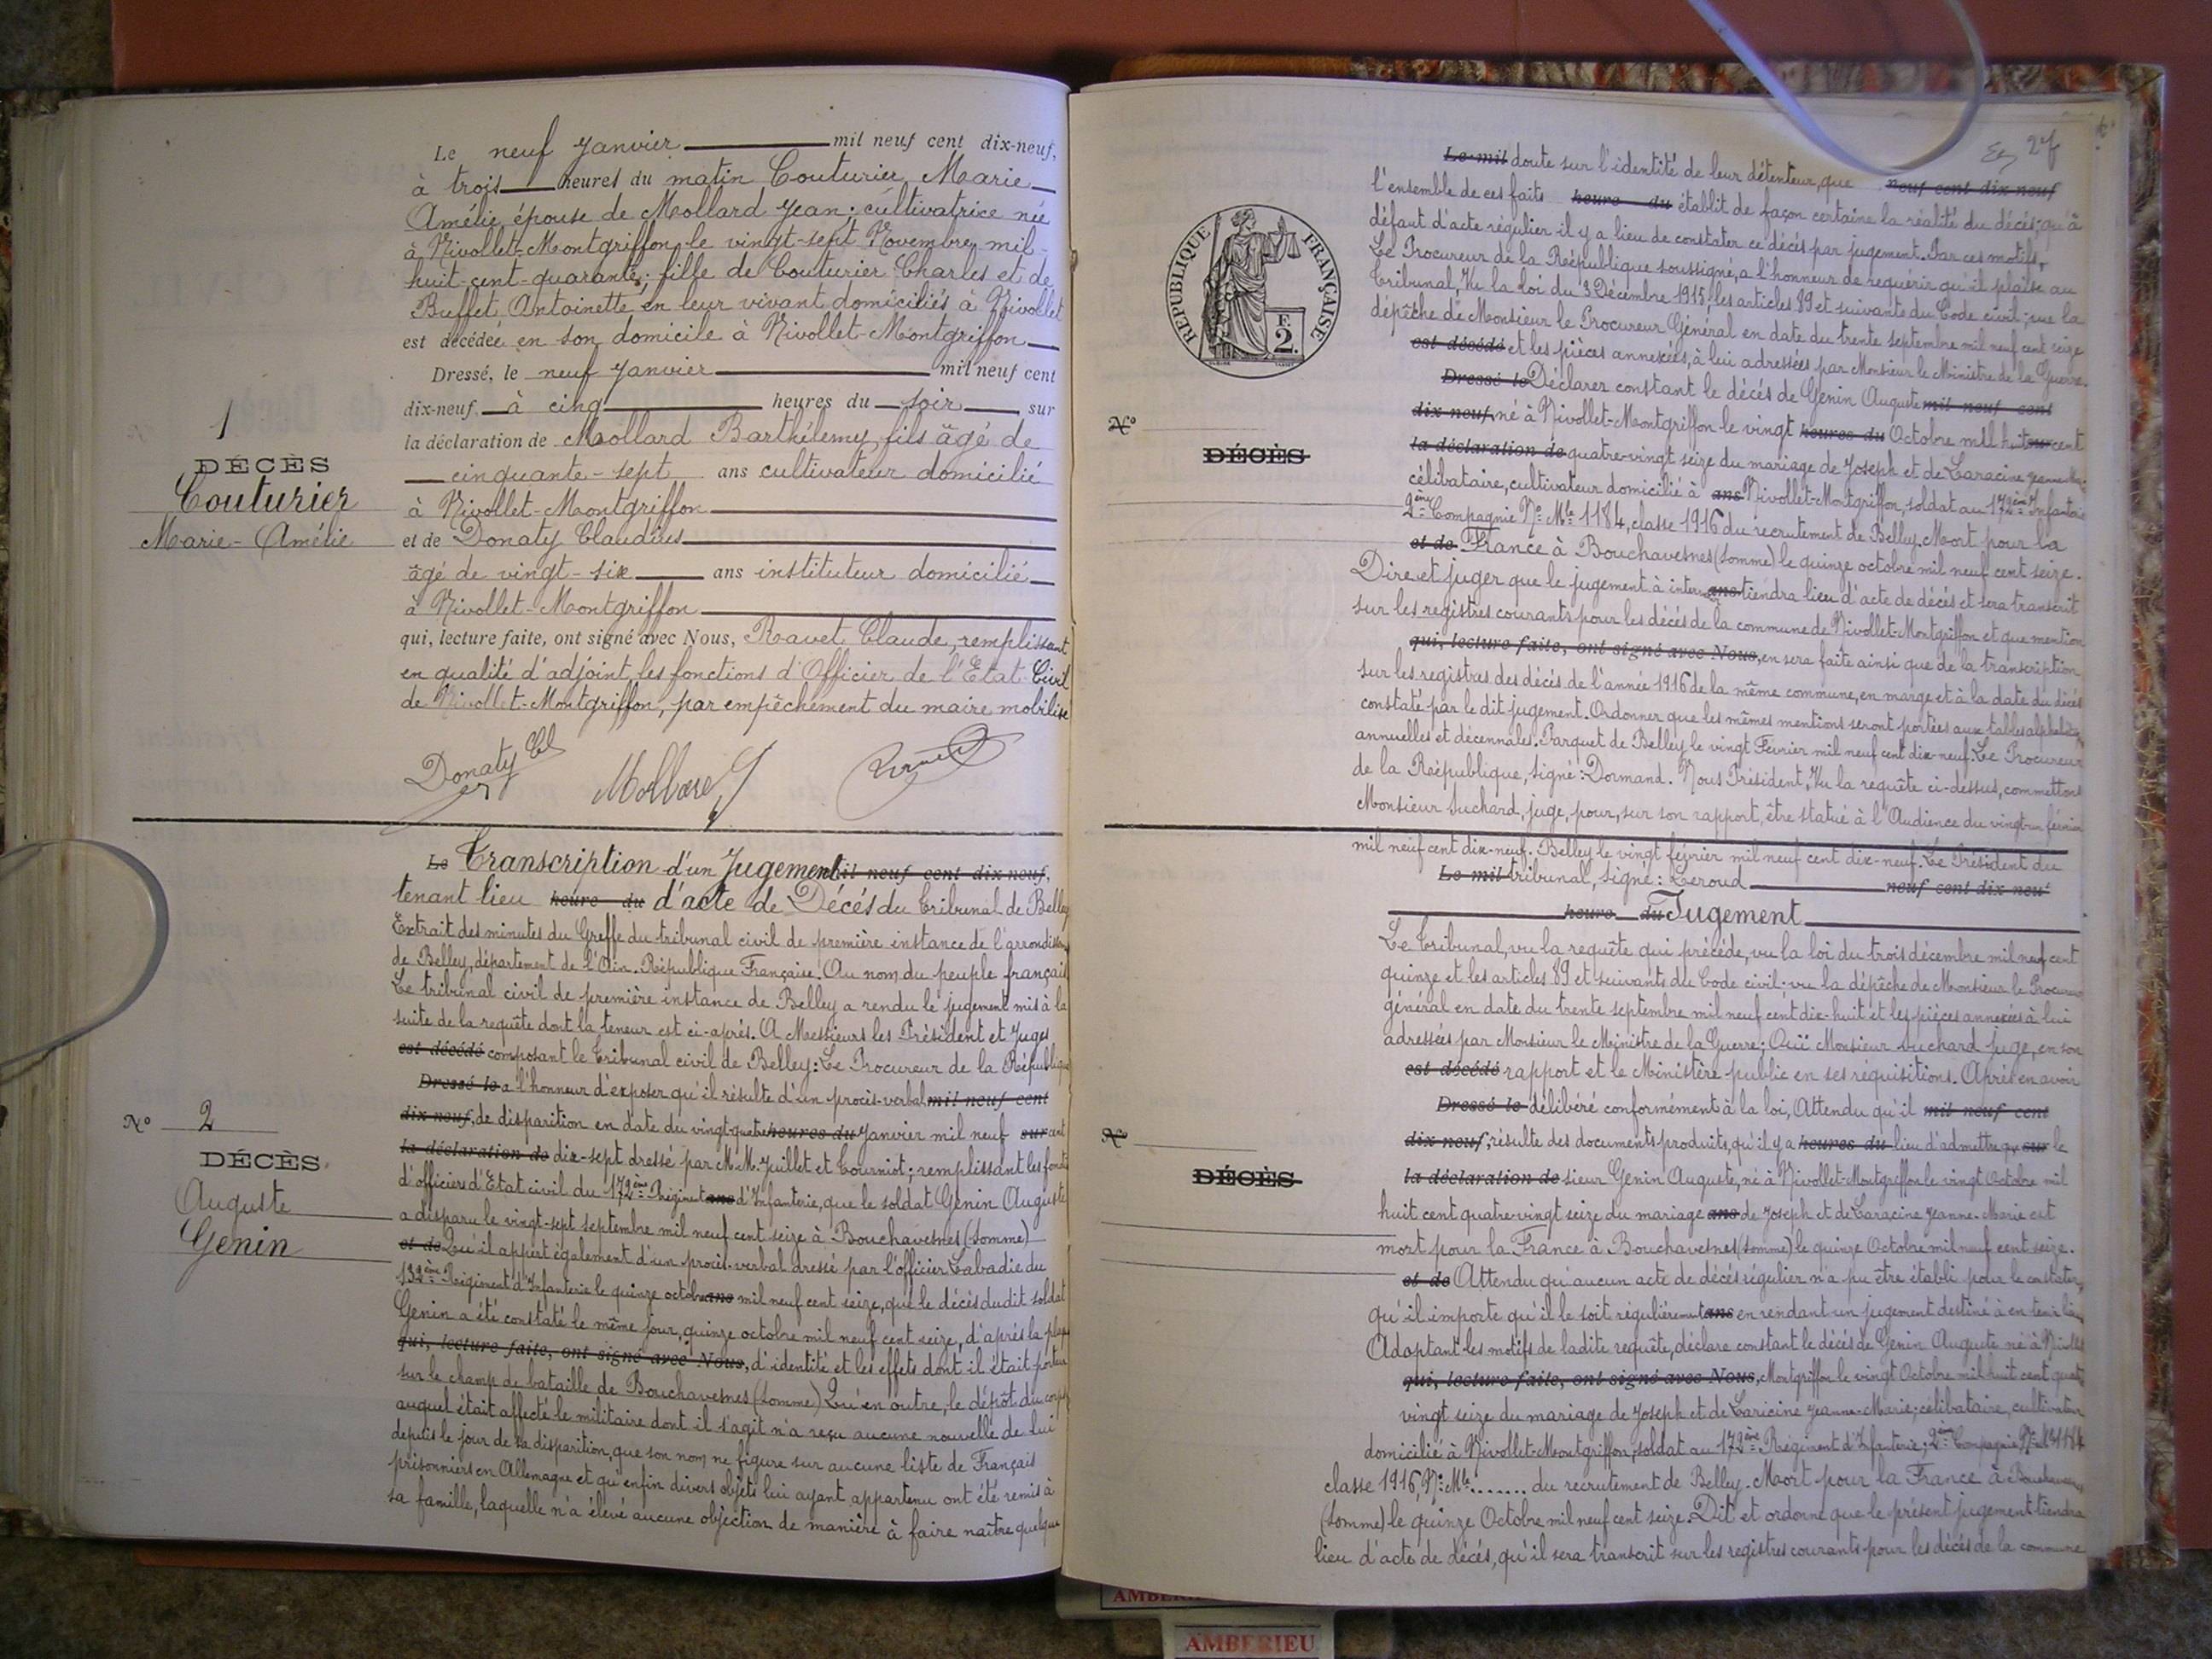 Le neuf Janvier mil neuf cent dix-neuf,
à trois heures du matin Couturier Marie
Amélie épouse de Mollard Jean; cultivatrice née
à Nivollet-Montgriffon le vingt-sept Novembre mil-
huit-cent-quarante; fille de Couturier Charles et de
Buffet Antoinette en leur vivant domiciliés à Nivollet
est décédée en son domicile à Nivollet-Montgriffon
Dressé, le neuf Janvier mil neuf cent
dix-neuf à cinq heures du soir, sur
la déclaration de Mollard Barthélemy, fils âgé de
cinquante-sept ans cultivateur domicilié
à Nivollet-Montgriffon
et de Donaty Claudius
âgé de vingt-six ans instituteur domicilié
à Nivollet-Montgriffon
qui, lecture faite, ont signé avec Nous, Ravet Claude, remplissant
en qualité d'adjoint les fonctions d'Officier de l'Etat-Civil
de Nivollet-Montgriffon, par empêchement du maire mobilisé
1
DÉCÈS
Couturier
Marie-Amélie
Donaty Cl
Mollard
Le Transcription d'un Jugement mil neuf cent dix-neuf,
tenant lieu heure du d'acte de Décés du tribunal de Belley
Extrait des minutes du Greffe du tribunal civil de première instance de l'arrondissem
de Belley, département de l'Ain. République Française. Au nom du peuple français
Le tribunal civil de première instance de Belley a rendu le jugement mis à la
suite de la requête dont la teneur est ci-après. A Messieurs les Président et Juges
est décédé composant le tribunal civil de Belley: Le Procureur de la République
Dressé le a l'honneur d'exposer qu'il résulte d'un procès-verbal mil neuf cent
dix-neuf, de disparition en date du vingt-quatre heures du Janvier mil neuf sur cent
la déclaration de dix-sept dressé par M.M. Juillet et Courniot; remplissant les fonct
d'officiers d'Etat civil du 172ème Régiment ans d'Infanterie, que le soldat Genin Auguste
a disparu le vingt-sept septembre mil neuf cent seize à Bouchavesnes (Somme)
et de Qu'il appert également d'un procès-verbal dressé par l'officier Labadie du
132ème Régiment d'Infanterie le quinze octobre ans mil neuf cent seize, que le décès dudit soldat
Genin a été constaté le même jour, quinze octobre mil neuf cent seize, d'après la plaque
qui, lecture faite, ont signé avec Nous, d'identité et les effets dont il était porteur
sur le champ de bataille de Bouchavesnes (Somme) Qu'en outre, le dépôt du corps
auquel était affecté le militaire dont il s'agit n'a reçu aucune nouvelle de lui
depuis le jour de sa disparition, que son nom ne figure sur aucune liste de Français
prisonniers en Allemagne et qu'enfin divers objets lui ayant appartenu ont été remis à
sa famille, laquelle n'a élevé aucune objection de manière à faire naître quelque
No 2
DÉCÈS
Auguste
Genin
27
Le mil doute sur l'identité de leur détenteur, que neuf cent dix-neuf
l'ensemble de ces faits heure du établit de façon certaine la réalité du décès; qu'à
défaut d'acte régulier il y a lieu de constater ce décès par jugement. Par ces motifs,
Le Procureur de la République soussigné, a l'honneur de requérir qu'il plaise au
tribunal, Vu la loi du 3 Décembre 1915, les articles 89 et suivants du Code civil; vue la
dépêche de Monsieur le Procureur Général en date du trente septembre mil neuf cent seize
est décédé et les pièces annexées, à lui adressées par Monsieur le Ministre de la Guerre.
Dressé le Déclarer constant le décès de Genin Auguste mil neuf cent
dix-neuf, né à Nivollet-Montgriffon le vingt heures du Octobre mil huit sur cent
la déclaration de quatre-vingt seize du mariage de Joseph et de Caracine Jeanne-Marie
célibataire, cultivateur domicilié à ans Nivollet-Montgriffon, soldat au 172ème Infanterie
2ème Compagnie No Mle 1184, classe 1916 du recrutement de Belley. Mort pour la
et de France à Bouchavesnes (Somme) le quinze octobre mil neuf cent seize.
Dire et juger que le jugement à interv ans tiendra lieu d'acte de décès et sera transcrit
sur les registres courants pour les décès de la commune de Nivollet-Montgriffon et que mention
qui, lecture faite, ont signé avec Nous, en sera faite ainsi que de la transcription
sur les registres des décès de l'année 1916 de la même commune, en marge et à la date du décès
constaté par le dit jugement. Ordonner que les mêmes mentions seront portées aux tables alphabétiq
annuelles et décennales. Parquet de Belley le vingt Février mil neuf cent dix-neuf. Le Procureur
de la République, Signé: Dormand. Nous Président, Vu la requête ci-dessus, commettons
Monsieur Suchard, juge, pour, sur son rapport, être statué à l'Audience du vingt-un février
mil neuf cent dix-neuf. Belley le vingt février mil neuf cent dix-neuf. Le Président du
Le mil tribunal, signé: Leroud neuf cent dix-neuf
heure du Jugement
Le tribunal, vu la requête qui précède, vu la loi du trois décembre mil neuf cent
quinze et les articles 89 et suivants du Code civil; vu la dépêche de Monsieur le Procureur
général en date du trente septembre mil neuf cent dix-huit et les pièces annexées à lui
adressées par Monsieur le Ministre de la Guerre; Ouï Monsieur Suchard juge, en son
est décédé rapport et le Ministère public en ses réquisitions. Après en avoir
Dressé le délibéré conformément à la loi, Attendu qu'il mil neuf cent
dix-neuf, résulte des documents produits, qu'il y a heures du lieu d'admettre que sur le
la déclaration de sieur Genin Auguste, né à Nivollet-Montgriffon le vingt Octobre mil
huit cent quatre-vingt seize du mariage ans de Joseph et de Caracine Jeanne-Marie est
mort pour la France à Bouchavesnes (Somme) le quinze Octobre mil neuf cent seize.
et de Attendu qu'aucun acte de décès régulier n'a pu être établi pour le constater,
qu'il importe qu'il le soit régulièrement ans en rendant un jugement destiné à en tenir lieu
Adoptant les motifs de ladite requête, déclare constant le décès de Genin Auguste né à Nivollet
qui, lecture faite, ont signé avec Nous, Montgriffon le vingt Octobre mil huit cent quatre
vingt seize du mariage de Joseph et de Caricine Jeanne-Marie; célibataire, cultivateur
domicilié à Nivollet-Montgriffon, soldat au 172ème Régiment d'Infanterie; 2ème Compagnie No Mle 1184
classe 1916, No Mle ....... du recrutement de Belley. Mort pour la France à Bouchavesnes
(Somme) le quinze Octobre mil neuf cent seize. Dit et ordonne que le présent jugement tiendra
lieu d'acte de décès, qu'il sera transcrit sur les registres courants pour les décès de la commune
RÉPUBLIQUE FRANÇAISE
F.
2.
No
DÉCÈS
No
DÉCÈS
AMBERIEU